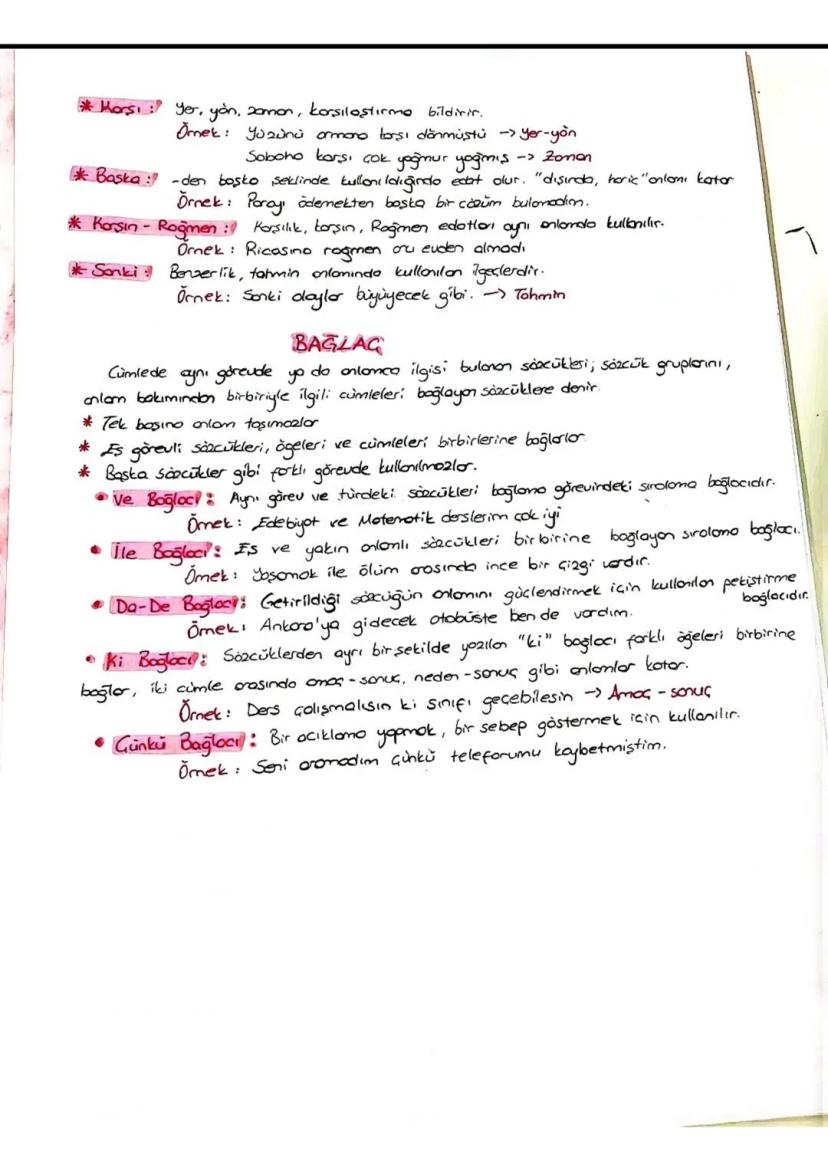 * Karşı : Yer, yön, zaman, karşılaştırma bildirir.
Örnek : Yüzünü ormana karşı dönmüştü → Yer-yön
Sabaha karşı çok yağmur yağmış → Zaman
* Başka : -den başka şeklinde kullanıldığında edat olur. "dışında, hariç" anlamı katar
Örnek : Parayı ödemekten başka bir çözüm bulamadım.
* Karşın - Rağmen : Karşılık, karşın, Rağmen edatları aynı anlamda kullanılır.
Örnek : Ricasına rağmen onu evden almadı
* Sanki : Benzerlik, tahmin anlamında kullanılan ilgeçlerdir.
Örnek : Sanki olaylar büyüyecek gibi. → Tahmin
BAĞLAÇ
Cümlede aynı görevde ya da anlamca ilgisi bulunan sözcükleri; sözcük gruplarını,
anlam bakımından birbiriyle ilgili cümleleri bağlayan sözcüklere denir.
* Tek başına anlam taşımazlar
* Eş görevli sözcükleri, ögeleri ve cümleleri birbirlerine bağlarlar.
* Başka sözcükler gibi farklı görevde kullanılmazlar.
• Ve Bağlacı : Aynı görev ve türdeki sözcükleri bağlama görevindeki sıralama bağlacıdır.
Örnek : Edebiyat ve Matematik derslerim çok iyi
• İle Bağlacı : Eş ve yakın anlamlı sözcükleri birbirine bağlayan sıralama bağlacı.
Örnek : Yaşamak ile ölüm arasında ince bir çizgi vardır.
• Da-De Bağlacı : Getirildiği sözcüğün anlamını güçlendirmek için kullanılan pekiştirme
bağlacıdır.
Örnek : Ankara'ya gidecek otobüste ben de vardım.
• Ki Bağlacı : Sözcüklerden ayrı bir şekilde yazılan "ki" bağlacı farklı öğeleri birbirine
bağlar, iki cümle arasında amaç - sonuç, neden - sonuç gibi anlamlar katar.
Örnek : Ders çalışmalısın ki sınıfı geçebilesin → Amaç - sonuç
• Çünkü Bağlacı : Bir açıklama yapmak, bir sebep göstermek için kullanılır.
Örnek : Seni aramadım çünkü telefonumu kaybetmiştim.